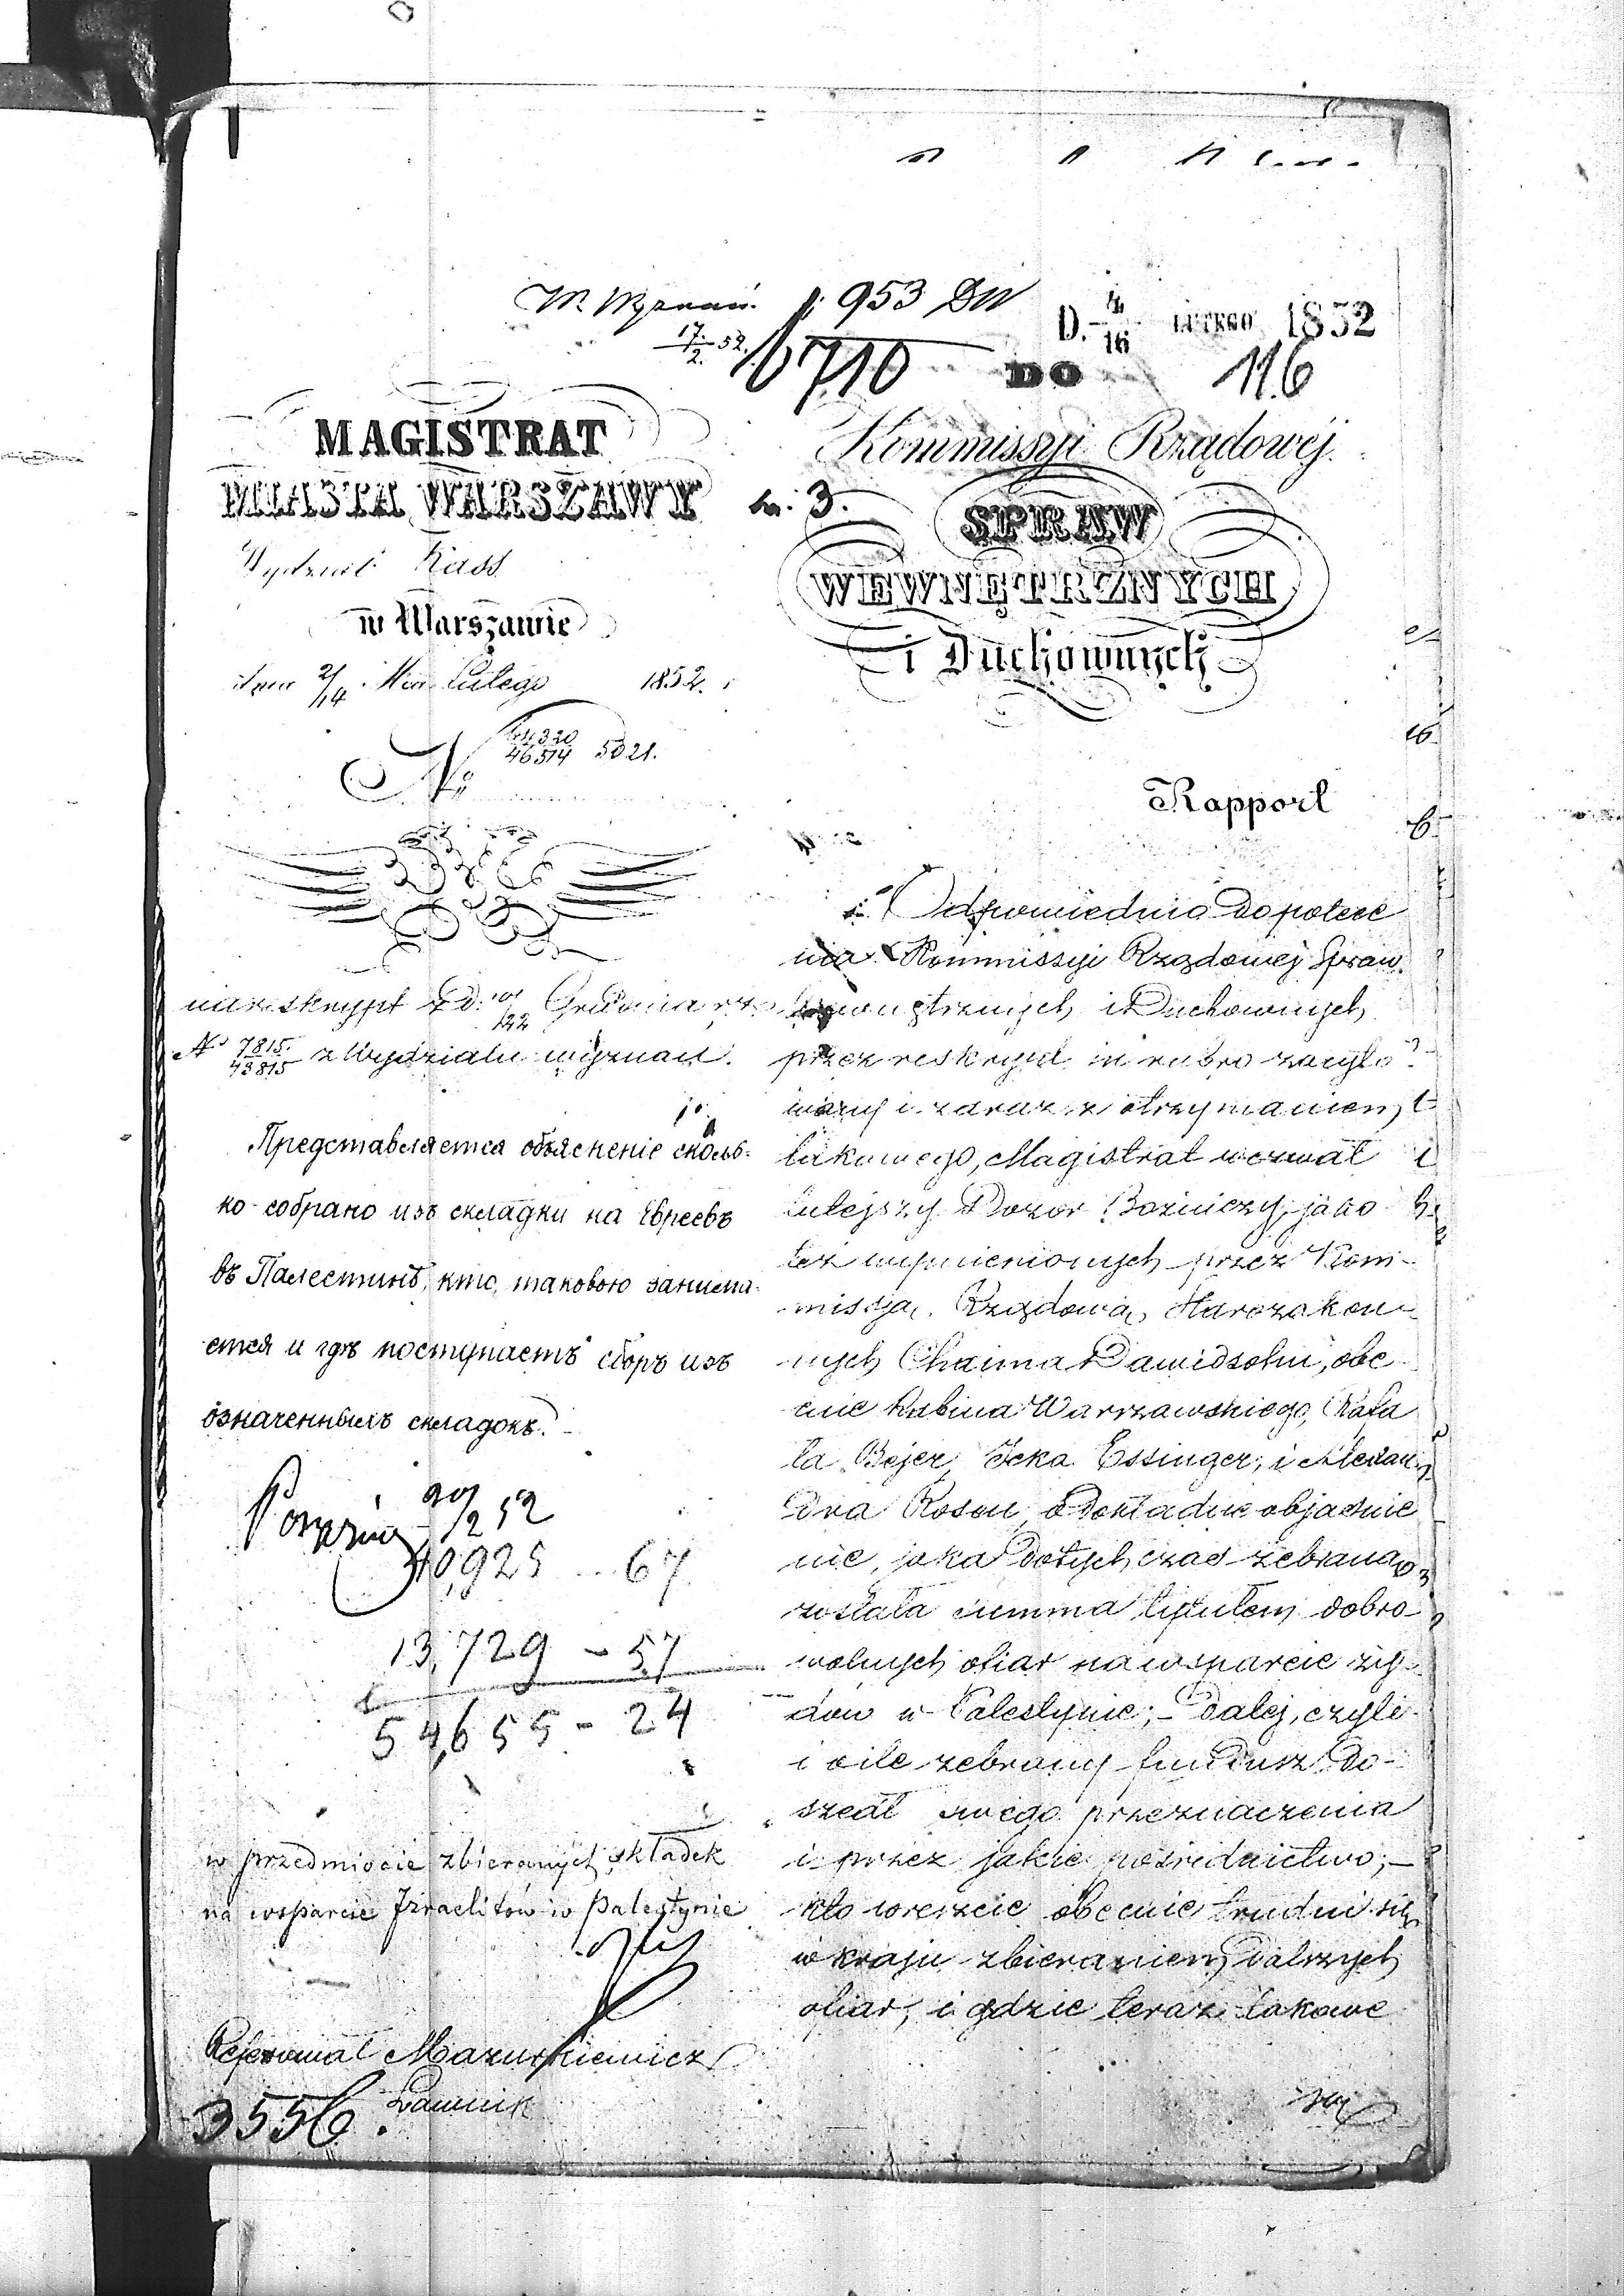 W. Wyznań. p. 953 DW
17/2. 52.
D. 4/16 LUTEGO 1852
6710
DO
116
MAGISTRAT
MIASTA WARSZAWY
Wydział Kass
w Warszawie
dnia 2/14 Mca Lutego 1852. r
No 44320/46514 5021.
na reskrypt z d. 10/122 Grudnia r. z.
No 7815./43815 z Wydziału wyznań.
Представляется объясненіе сколь-
ко собрано изъ складки на Евреевъ
въ Палестинѣ, кто таковою занима-
ется и гдѣ поступаетъ сборъ изъ
означенныхъ складокъ.
20/2 52
40,925 .. 67
13,729 - 57
54,655 - 24
w przedmiocie zbieranych składek
na wsparcie Izraelitów w Palestynie
Referował Mazurkiewicz
Ławnik
3556.
Kommissyi Rządowéj
3.
SPRAW
WEWNĘTRZNYCH
i Duchownych
Rapport
Odpowiednio do polece
nia Kommissyi Rządowej Spraw
Wewnętrznych i Duchownych
przez reskrypt in rubro zacyto
wany i zaraz z otrzymaniem
takowego, Magistrat wezwał
tutejszy Dozor Bożniczy, jako
też wymienionych przez Kom-
missją Rządową Starozakon-
nych Chaima Dawidsohn, obe
cnie Rabina Warszawskiego, Rafa
ła Bejer, Icka Essinger, i Alexan
dra Rosen, o dokładne objaśnie
nie, jaka dotychczas zebrana
została summa tytułem dobro-
wolnych ofiar na wsparcie ży-
dów w Palestynie; - dalej, czyli
i o ile zebrany fundusz do-
szedł swego przeznaczenia
i przez jakie pośrednictwo; -
kto wreszcie obecnie trudni się
w kraju zbieraniem dalszych
ofiar, i gdzie teraz takowe